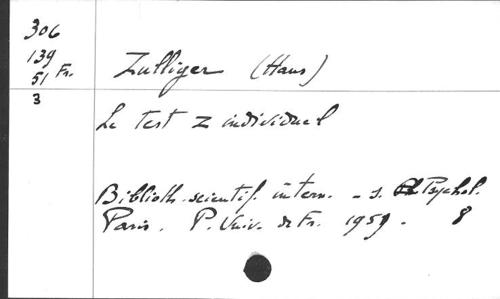 306
139
51 Fr.
3
Zulliger (Hans)
Le Test Z individuel
Biblioth. scientif. intern. - s. Psychol.
Paris. P. Univ. de Fr. 1959. 8